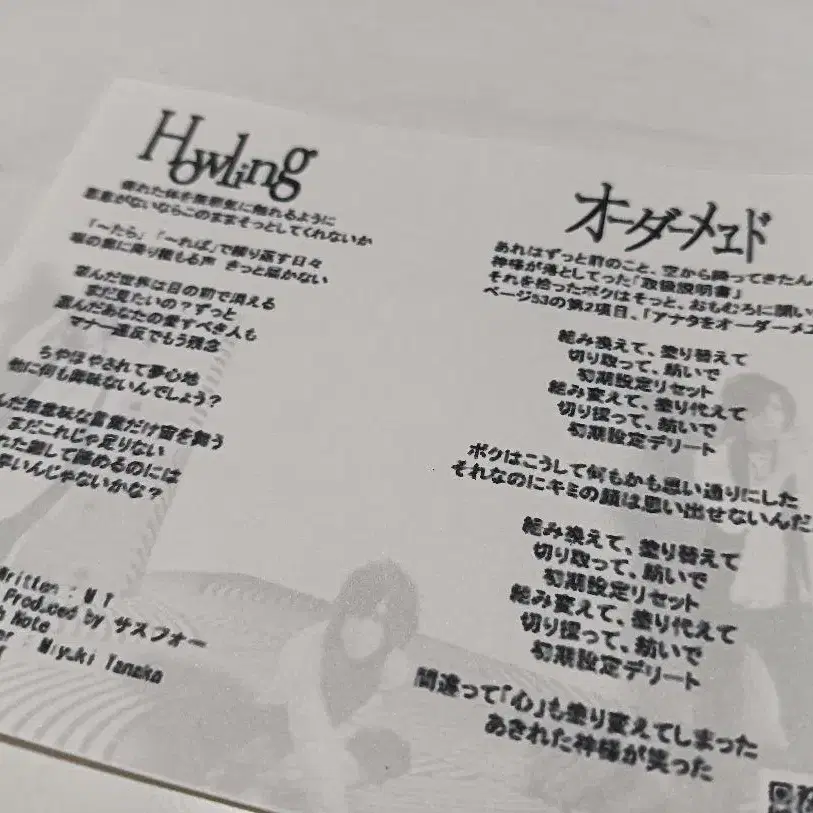 Howling
疲れた体を無邪気に触れるように
悪意がないならこのままそっとしてくれないか
「〜たら」「〜れば」で繰り返す日々
喉の奥に降り積もる声 きっと届かない
歪んだ世界は目の前で消える
まだ見たいの？ずっと
選んだあなたの愛すべき人も
マナー違反でもう残念
ちやほやされて夢心地
他に何も興味ないんでしょう？
んだ無意味な言葉だけ宙を舞う
まだこれじゃ足りない
れた癒して眠めるのには
早いんじゃないかな？
ritten : M.T
Produced by サスフォー
Note
er : Miyuki Tanaka
オーダーメヱド
あれはずっと前のこと、空から降ってきたん
神様が落としてった「取扱説明書」
それを拾ったボクはそっと、おもむろに開い
ページ53の第2項目、「アナタをオーダーメ
組み換えて、塗り替えて
切り取って、紡いで
初期設定リセット
組み変えて、塗り代えて
切り採って、紡いで
初期設定デリート
ボクはこうして何もかも思い通りにした
それなのにキミの顔は思い出せないんだ
組み換えて、塗り替えて
切り取って、紡いで
初期設定リセット
組み変えて、塗り代えて
切り採って、紡いで
初期設定デリート
間違って「心」も塗り変えてしまった
あきれた神様が笑った